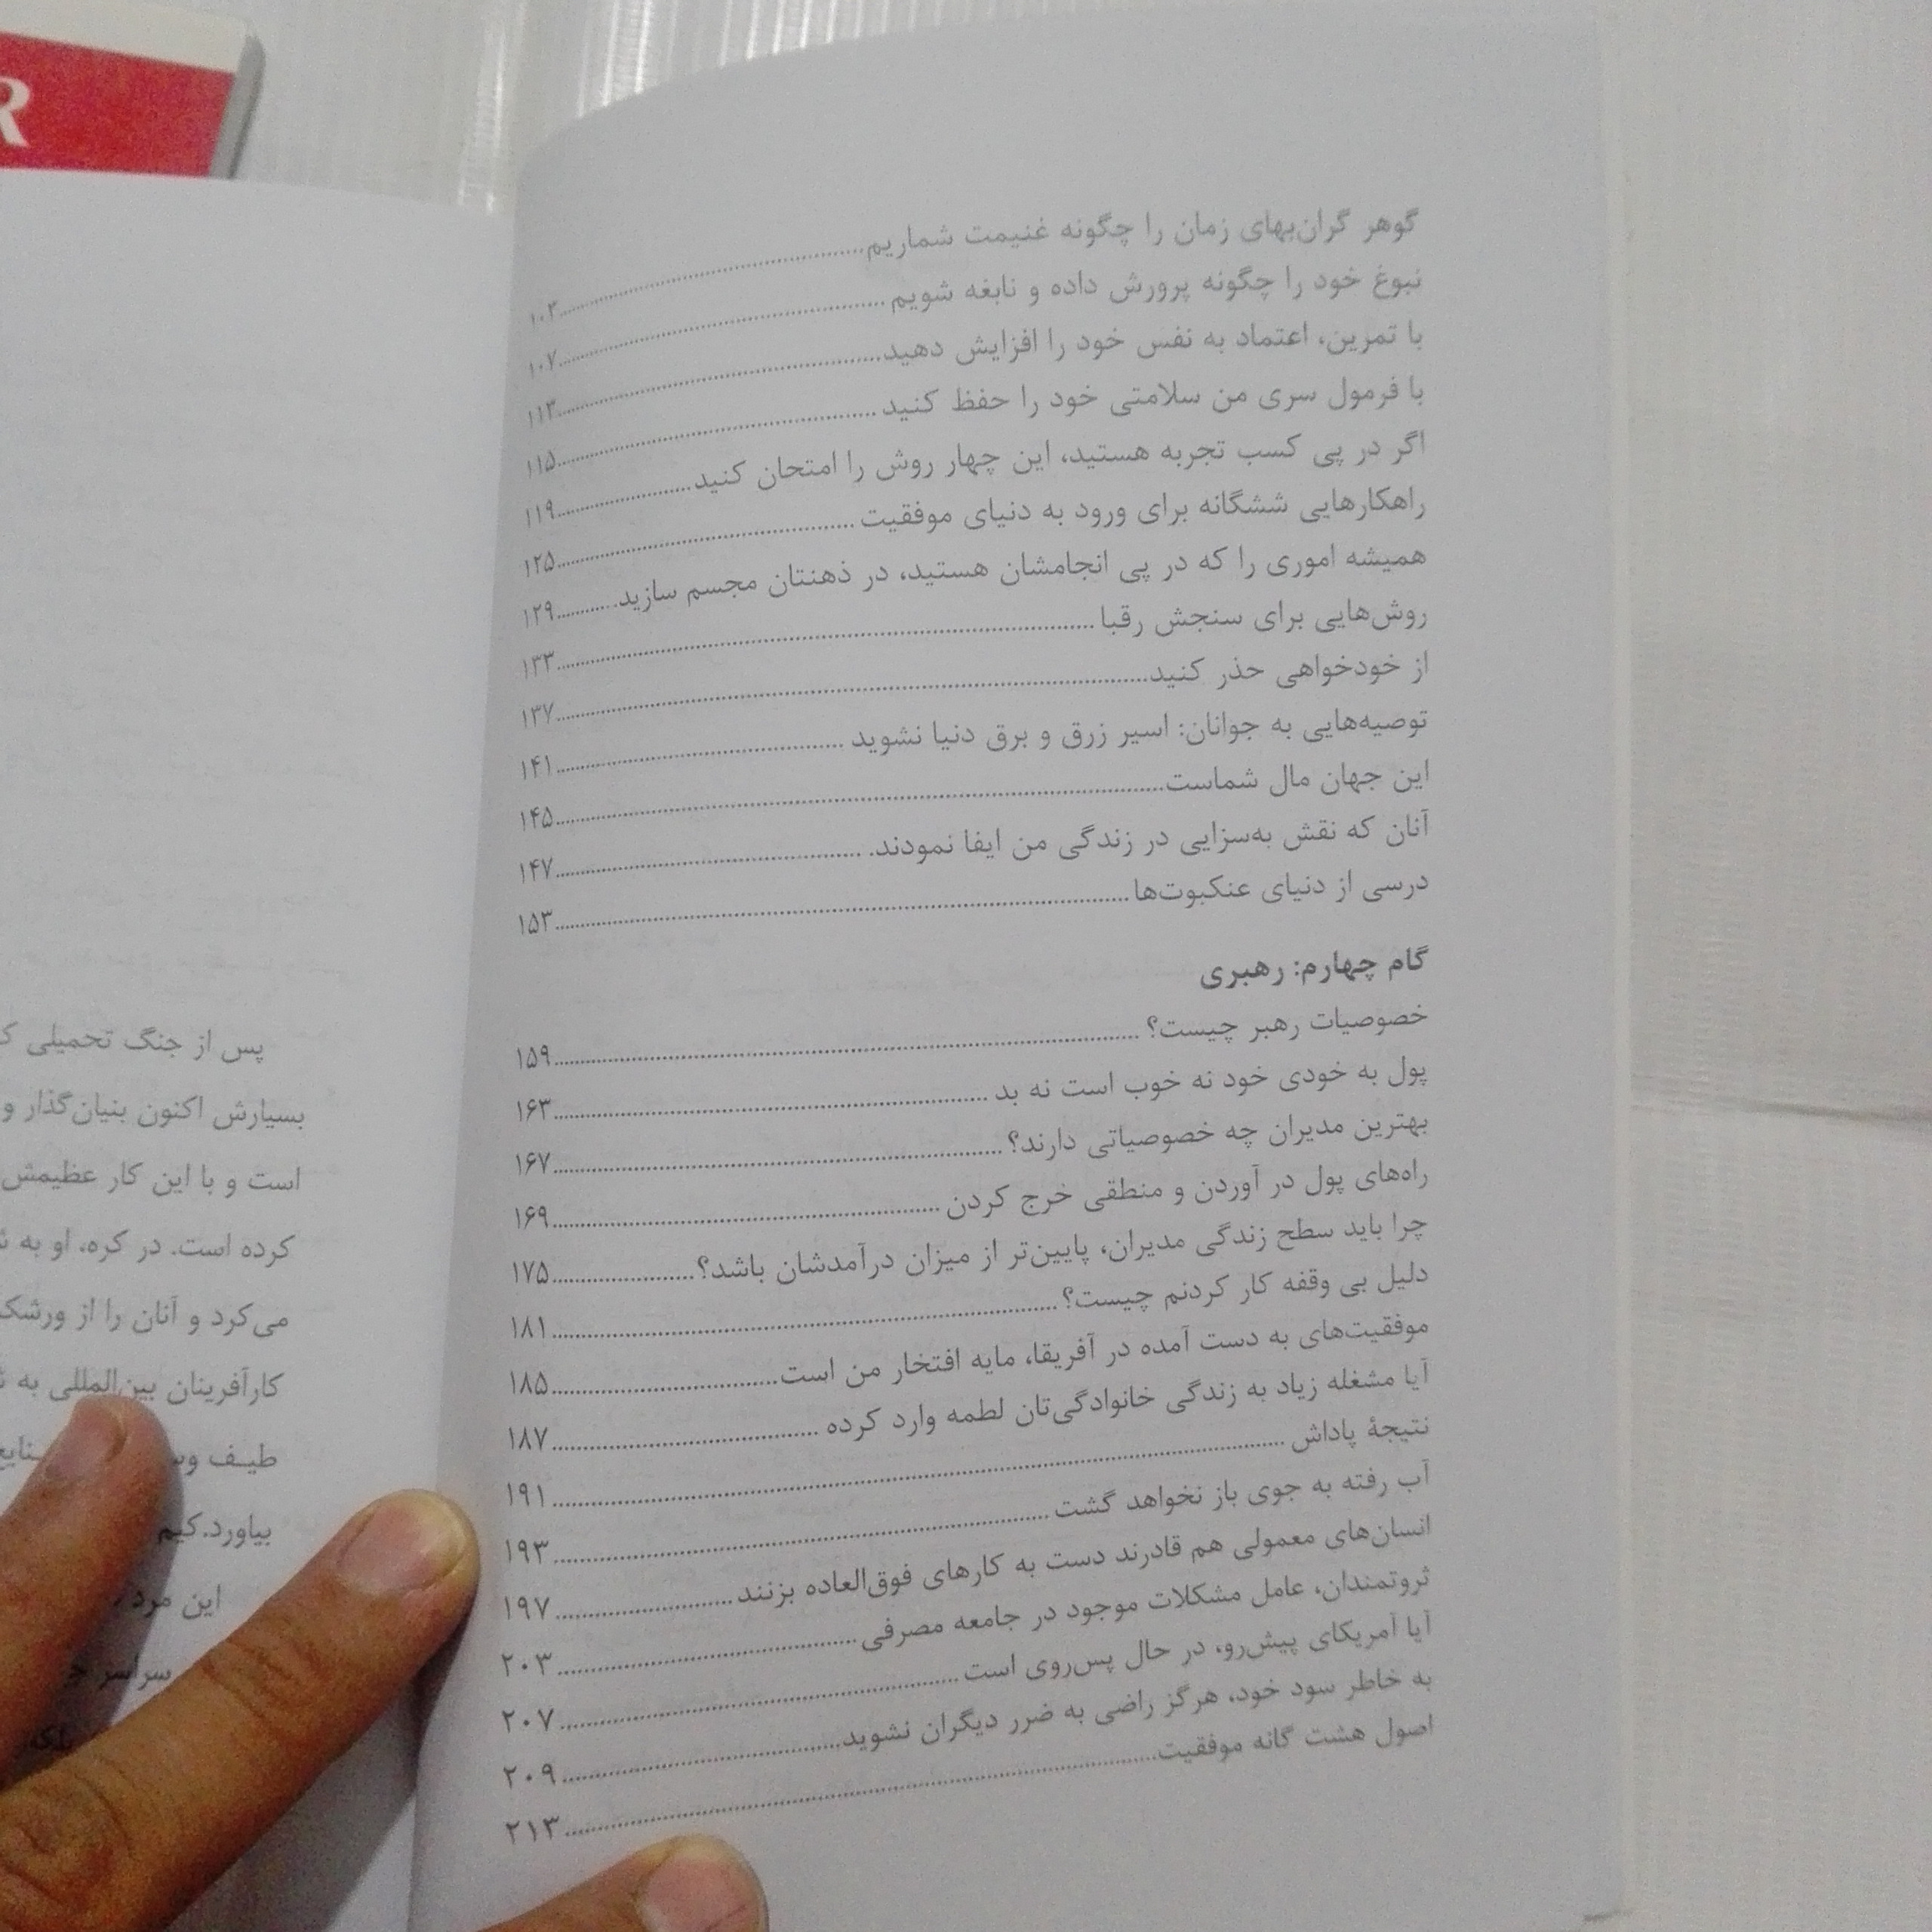 گوهر گران‌بهای زمان را چگونه غنیمت شماریم..........۱۰۳
نبوغ خود را چگونه پرورش داده و نابغه شویم..........۱۰۷
با تمرین، اعتماد به نفس خود را افزایش دهید..........۱۱۳
با فرمول سری من سلامتی خود را حفظ کنید..........۱۱۵
اگر در پی کسب تجربه هستید، این چهار روش را امتحان کنید..........۱۱۹
راهکارهایی ششگانه برای ورود به دنیای موفقیت..........۱۲۵
همیشه اموری را که در پی انجامشان هستید، در ذهنتان مجسم سازید..........۱۲۹
روش‌هایی برای سنجش رقبا..........۱۳۳
از خودخواهی حذر کنید..........۱۳۷
توصیه‌هایی به جوانان: اسیر زرق و برق دنیا نشوید..........۱۴۱
این جهان مال شماست..........۱۴۵
آنان که نقش به‌سزایی در زندگی من ایفا نمودند...........۱۴۷
درسی از دنیای عنکبوت‌ها..........۱۵۳
گام چهارم: رهبری
خصوصیات رهبر چیست؟..........۱۵۹
پول به خودی خود نه خوب است نه بد..........۱۶۳
بهترین مدیران چه خصوصیاتی دارند؟..........۱۶۷
راه‌های پول در آوردن و منطقی خرج کردن..........۱۶۹
چرا باید سطح زندگی مدیران، پایین‌تر از میزان درآمدشان باشد؟..........۱۷۵
دلیل بی وقفه کار کردنم چیست؟..........۱۸۱
موفقیت‌های به دست آمده در آفریقا، مایه افتخار من است..........۱۸۵
آیا مشغله زیاد به زندگی خانوادگی‌تان لطمه وارد کرده..........۱۸۷
نتیجهٔ پاداش..........۱۹۱
آب رفته به جوی باز نخواهد گشت..........۱۹۳
انسان‌های معمولی هم قادرند دست به کارهای فوق‌العاده بزنند..........۱۹۷
ثروتمندان، عامل مشکلات موجود در جامعه مصرفی..........۲۰۳
آیا آمریکای پیش‌رو، در حال پس‌روی است..........۲۰۷
به خاطر سود خود، هرگز راضی به ضرر دیگران نشوید..........۲۰۹
اصول هشت گانه موفقیت..........۲۱۳
پس از جنگ تحمیلی
بسیارش اکنون بنیان‌گذار و
است و با این کار عظیمش
کرده است. در کره، او به
می‌کرد و آنان را از
کارآفرینان بین‌المللی به
طیـف
بیاورد.کیم
این مرد
سراسر
R